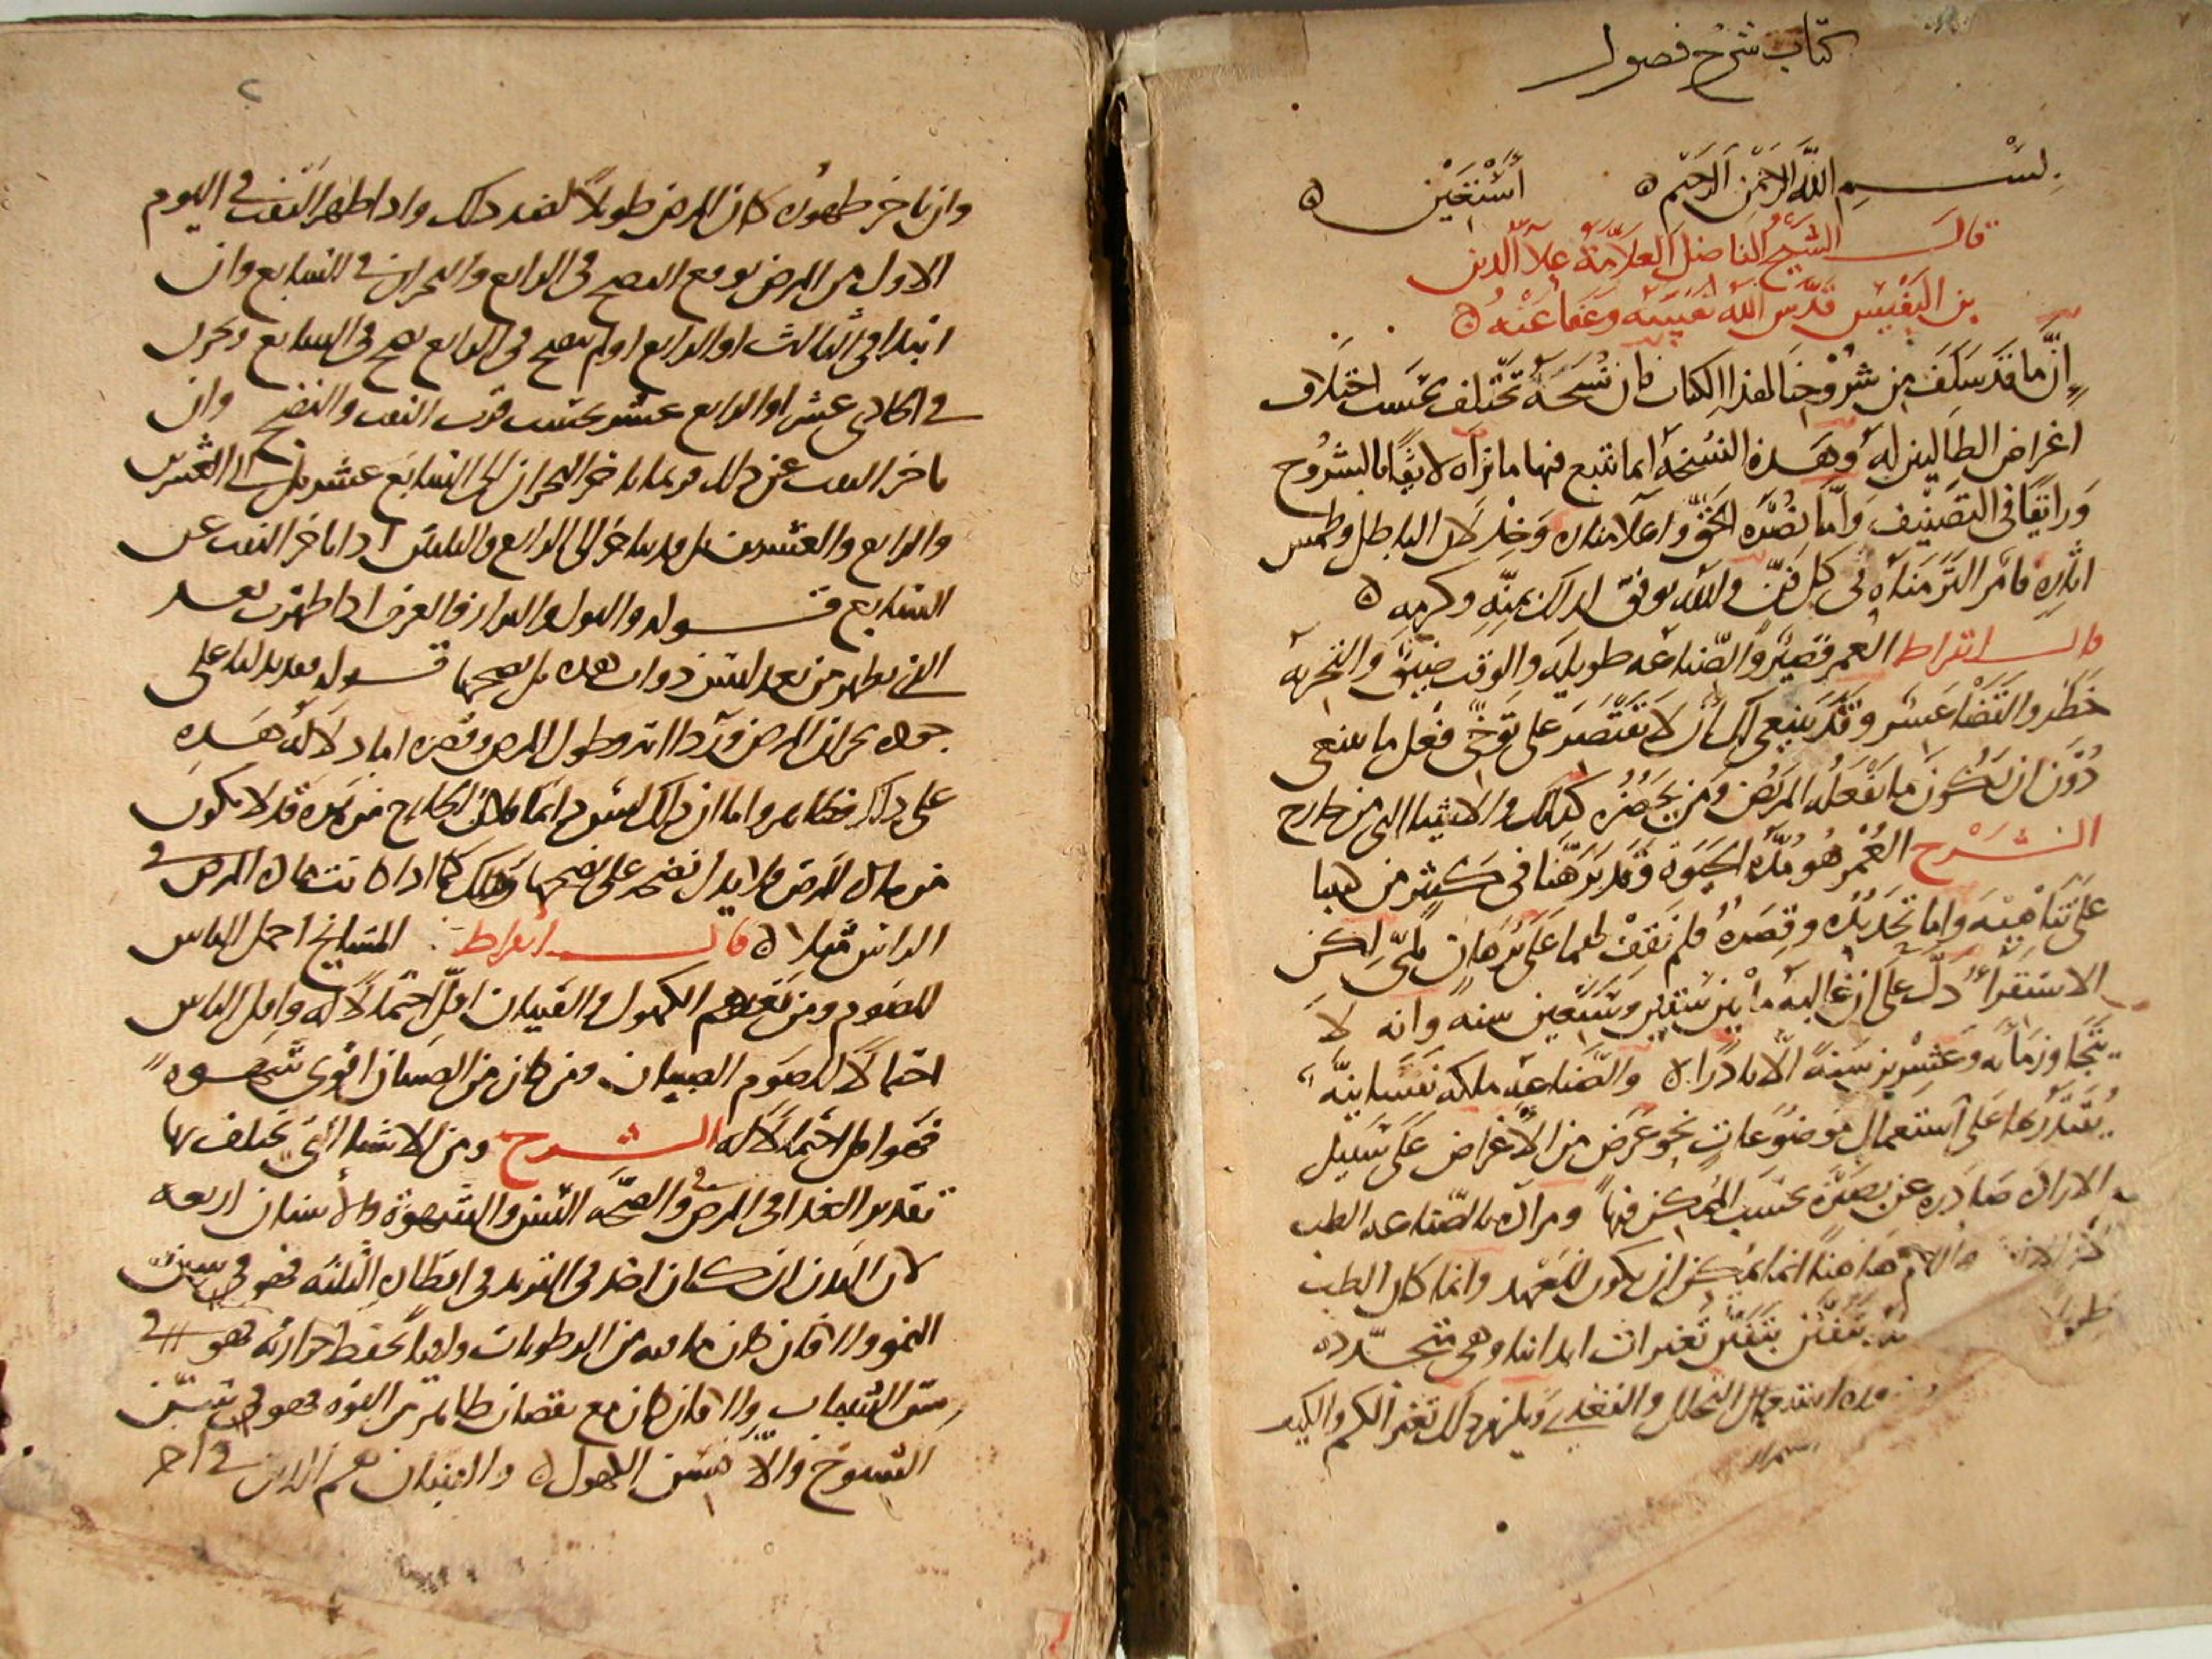 كتاب شرح فصول
بسم الله الرحمن الرحيم أستعين
قال الشيخ الفاضل العلامة علا الدين
بن النفيس قدس الله نفسه وعفا عنه
إن ما قد سلف من شروحنا لهذا الكتاب فان نسخه تختلف بحسب اختلاف
اغراض الطالبين له وهذه النسخة انما نتبع فيها ما نراه لائقا بالشروح
ورائقا في التصنيف وأما نصرة الحق واعلا مناره وخذلان الباطل وطمس
اثاره فأمر التزمناه في كل فن والله يوفق لذلك بمنه وكرمه
قال ابقراط العمر قصير والصناعة طويلة والوقت ضيق والتجربة
خطر والقضا عسر وقد ينبغي لك أن لا تقتصر على توخي فعل ما ينبغي
دون ان يكون ما يفعله المريض ومن يحضره كذلك والاشيا التي من خارج
الشرح العمر هو مدة الحيوة وقد برهنا في كثير من كتبنا
على تناهيه واما تحديده وقصره فلم نقف لهما على برهان لمي لكن
الاستقرأ دل على ان غالبه ما بين ستين وسبعين سنة وانه لا
يتجاوز مائه وعشرين سنة الا نادرا والصناعه ملكه نفسانية
يقتدر بها على استعمال موضوعات نحو غرض من الأغراض على سبيل
الارادة صادره عن بصيرة بحسب الممكن فيها ومراده بالصناعه الطب
هاهنا انما يمكن ان يكون للعهد وانما كان الطب
طويلا يتفنن بتفنن تغيرات ابداننا وهي متجدده
التحلل والتغذي ويلزم ذلك تغير الكم والكيف
٢
وان تاخر ظهوره كان المرض طويلا لفقد ذلك واذا ظهر النفث في اليوم
الاول من المرض توقع النضج في الرابع والبحران في السابع وان
ابتدا في الثالث او الرابع اولم ينضج في الرابع نضج في السابع وبحرن
في الحادي عشر او الرابع عشر بحسب قرب النفث والنضج وان
تاخر النفث عن ذلك فربما تاخر البحران الى السابع عشر بل الى العشرين
والرابع والعشرين بل وربما تاخر الى الرابع والثلثين اذا تاخر النفث عن
السابع قوله والبول والبراز والعرق اذا ظهرت بعد
التي تظهر من بعد ليس ذوات هذه بل نضجها قوله فقد يدلنا على
جودة بحران المرض ورداءته وطول المرض وقصره اما دلالة هذه
على ذلك فظاهر واما ان ذلك ليس دائما فلان الخارج من هذه قد لا يكون
من مادة المرض فلا يدل نضجه على نضجها وذلك كما اذا كانت مادة المرض في
الراس مثلا قال ابقراط المشايخ احمل الناس
للصوم ومن بعدهم الكهول والفتيان اقل احتمالا له واقل الناس
احتمالا للصوم الصبيان ومن كان من الصبيان اقوى شهوة
فهو اقل احتمالا له الشرح ومن الاشيا التي يختلف بها
تقدير الغذا في المرض والصحة السن والشهوة والأسنان اربعه
لان البدن ان كان اخذ في التزيد في اقطاره الثلثه فهو في سن
النمو والا فان كان ما فيه من الرطوبات وافيا بحفظ حرارته فهو في
سن الشباب والا فان كان مع نقصان ظاهر من القوه فهو في سن
الشيوخ والا فسن الكهول والفتيان هم الذين في اخر